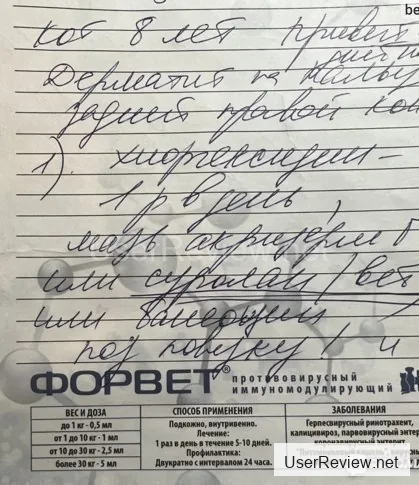 be
кот 8 лет привит
чистый
Дерматит на пальц
задней правой кон
1). хлоргексидин -
1 р в день,
мазь акридерм Г
или суролан (вет
или банеоцин
под повязку / и
ФОРВЕТ® противовирусный
иммуномодулирующий
ВЕС И ДОЗА
до 1 кг - 0,5 мл
от 1 до 10 кг - 1 мл
от 10 до 30 кг - 2,5 мл
более 30 кг - 5 мл
СПОСОБ ПРИМЕНЕНИЯ
Подкожно, внутривенно.
Лечение:
1 раз в день в течение 5-10 дней.
Профилактика:
Двукратно с интервалом 24 часа.
ЗАБОЛЕВАНИЯ
Герпесвирусный ринотрахеит,
калицивироз, парвовирусный энтер
коронавирусный энтерит
UserReview.net